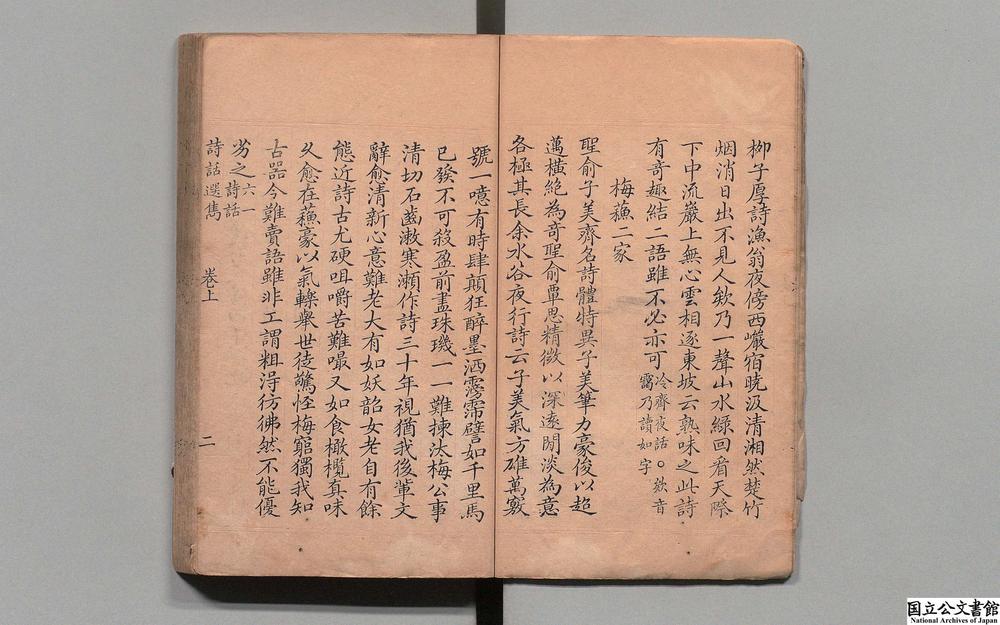 栁子厚詩漁翁夜傍西巖宿曉汲清湘然楚竹
烟消日出不見人欸乃一聲山水綠回看天際
下中流巖上無心雲相逐東坡云熟味之此詩
有奇趣結二語雖不必亦可冷齋夜話○欸音
靄乃讀如字
梅蘓二家
聖俞子美齊名詩體特異子美筆力豪俊以超
邁橫絶為奇聖俞覃思精微以深遠閒淡為意
各極其長余水谷夜行詩云子美氣方雄萬竅
號一噫有時肆顛狂醉墨洒霶霈譬如千里馬
已發不可殺盈前盡珠璣一一難揀汰梅公事
清切石齒漱寒瀨作詩三十年視猶我後輩文
辭愈清新心意難老大有如妖韶女老自有餘
態近詩古尤硬咀嚼苦難嘬又如食橄欖真味
乆愈在蘓豪以氣轢舉世徒驚怪梅窮獨我知
古器今難賣語雖非工謂粗淂彷彿然不能優
劣之六一
詩話
詩話選雋 卷上 二
国立公文書館
National Archives of Japan